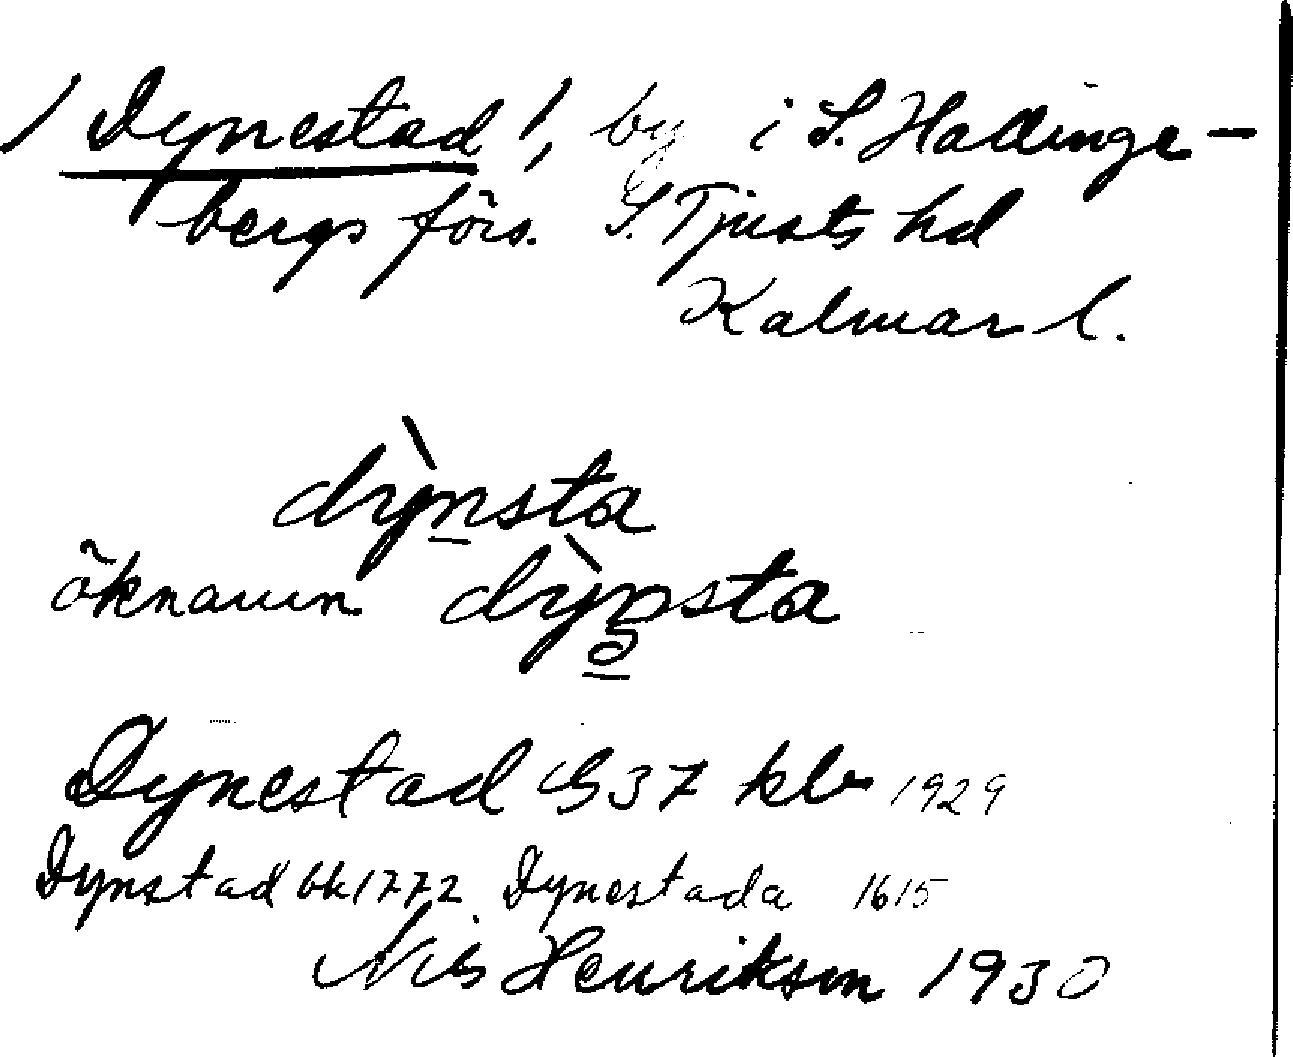 / Dynestad /, by i S. Hallinge-
bergs förs. S. Tjusts hd
Kalmar l.
dỳnsta
öknamn dỳnsta
Dynestad G 37 kb 1929
Dynstad bk 1772 Dynestada 1615
Nils Henrikson 1930